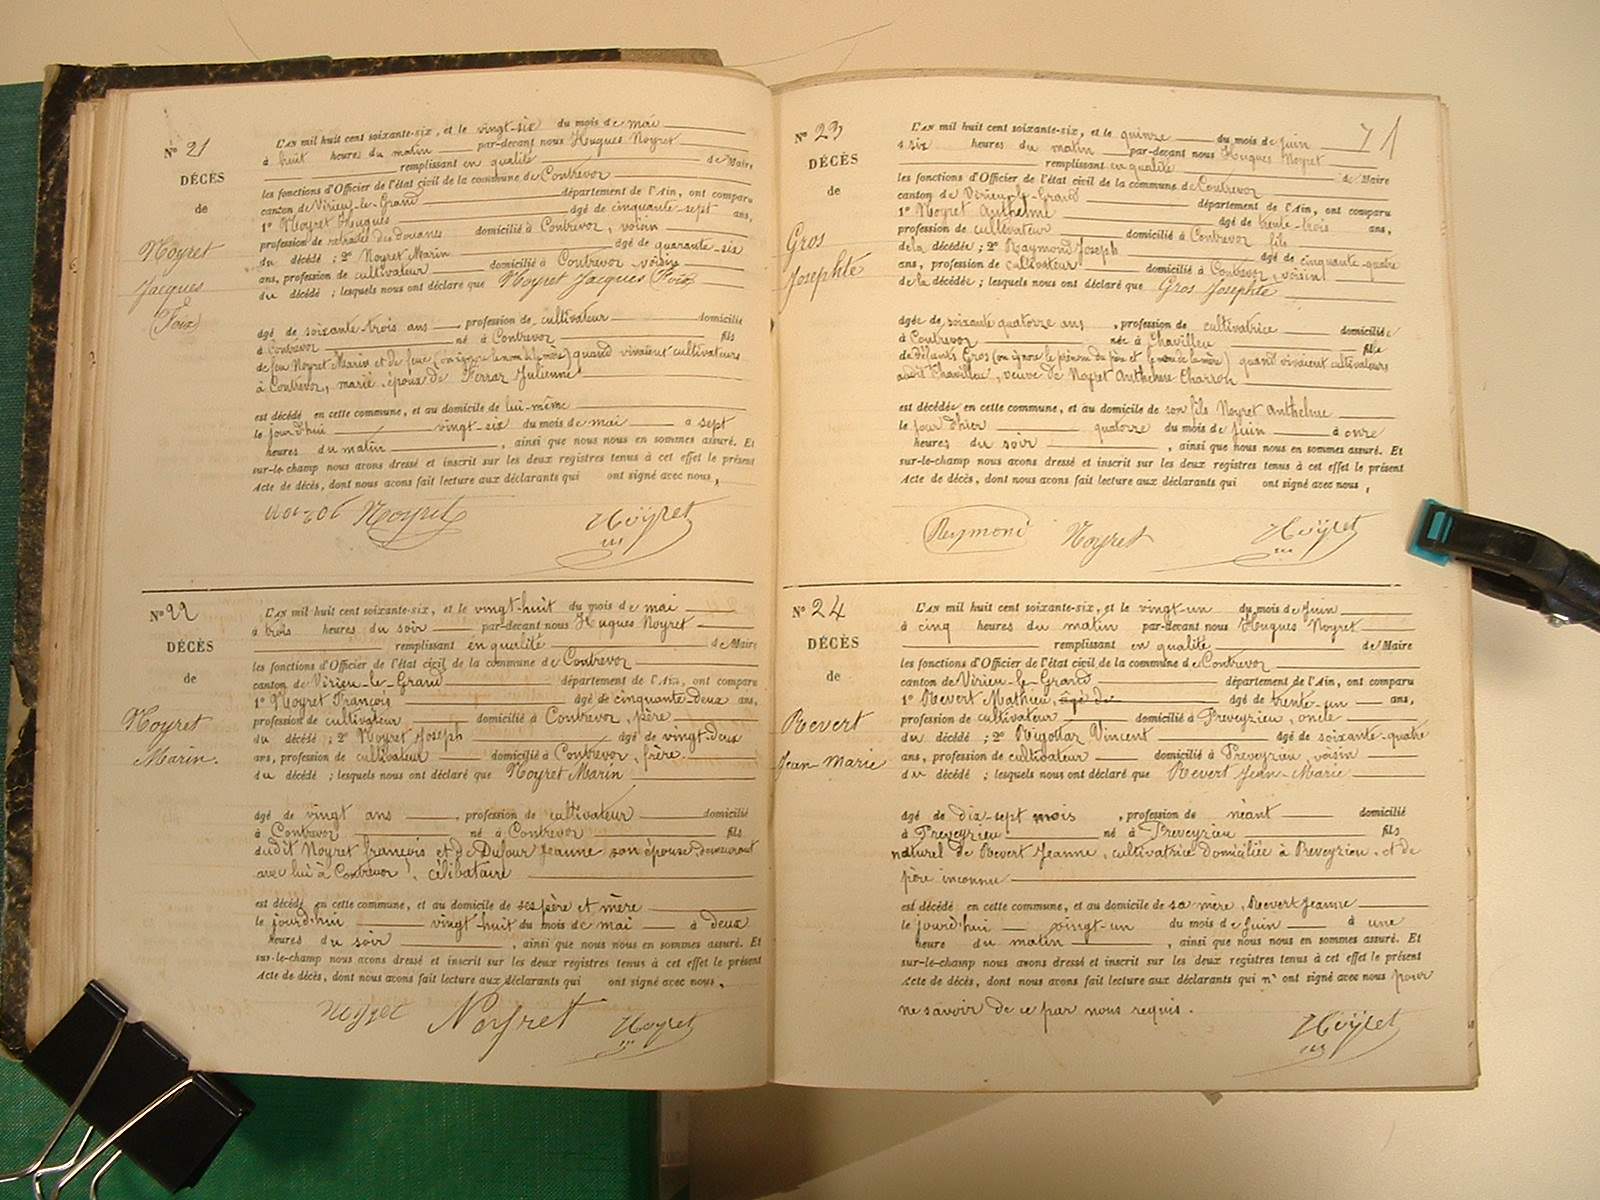 N° 21
DÉCÈS
de
Noyret
Jacques
(Foix)
L'AN mil huit cent soixante-six, et le vingt-six du mois de mai
à huit heures du matin par-devant nous Hugues Noyret
remplissant en qualité de Maire
les fonctions d'Officier de l'état civil de la commune de Contrevoz
canton de Virieu-le-Grand département de l'Ain, ont comparu
1° Noyret Hugues âgé de cinquante-sept ans,
profession de retraité des douanes domicilié à Contrevoz, voisin
du décédé ; 2° Noyret Marin âgé de quarante-six
ans, profession de cultivateur domicilié à Contrevoz voisin
du décédé ; lesquels nous ont déclaré que Noyret Jacques (Foix)
âgé de soixante-trois ans, profession de cultivateur domicilié
à Contrevoz né à Contrevoz fils
de feu Noyret Marin et de feue (on ignore le nom de la mère) quand vivaient cultivateurs
à Contrevoz, marié, époux de Ferraz Julienne
est décédé en cette commune, et au domicile de lui-même
le jourd'hui vingt-six du mois de mai à sept
heures du matin, ainsi que nous nous en sommes assuré. Et
sur-le-champ nous avons dressé et inscrit sur les deux registres tenus à cet effet le présent
Acte de décès, dont nous avons fait lecture aux déclarants qui ont signé avec nous,
Noyret Noÿret
N° 22
DÉCÈS
de
Noyret
Marin.
L'AN mil huit cent soixante-six, et le vingt-huit du mois de mai
à trois heures du soir par-devant nous Hugues Noyret
remplissant en qualité de Maire
les fonctions d'Officier de l'état civil de la commune de Contrevoz
canton de Virieu-le-Grand département de l'Ain, ont comparu
1° Noyret François âgé de cinquante-deux ans,
profession de cultivateur domicilié à Contrevoz, père
du décédé ; 2° Noyret Joseph âgé de vingt-deux
ans, profession de cultivateur domicilié à Contrevoz, frère
du décédé ; lesquels nous ont déclaré que Noyret Marin
âgé de vingt ans, profession de cultivateur domicilié
à Contrevoz né à Contrevoz fils
dudit Noyret François et de Dufour Jeanne son épouse, demeurant
avec lui à Contrevoz, célibataire
est décédé en cette commune, et au domicile de ses père et mère
le jourd'hui vingt-huit du mois de mai à deux
heures du soir, ainsi que nous nous en sommes assuré. Et
sur-le-champ nous avons dressé et inscrit sur les deux registres tenus à cet effet le présent
Acte de décès, dont nous avons fait lecture aux déclarants qui ont signé avec nous.
Noyret Noyret Noyret
71
N° 23
DÉCÈS
de
Gros
Josephte
L'AN mil huit cent soixante-six, et le quinze du mois de juin
à six heures du matin par-devant nous Hugues Noyret
remplissant en qualité de Maire
les fonctions d'Officier de l'état civil de la commune de Contrevoz
canton de Virieu-le-Grand département de l'Ain, ont comparu
1° Noyret Anthelme âgé de trente-trois ans,
profession de cultivateur domicilié à Contrevoz fils
de la décédée ; 2° Raymond Joseph âgé de cinquante-quatre
ans, profession de cultivateur domicilié à Contrevoz, voisin
de la décédée ; lesquels nous ont déclaré que Gros Josephte
âgée de soixante quatorze ans, profession de cultivatrice domiciliée
à Contrevoz née à Chavilleu fille
de défunts Gros (on ignore le prénom du père et le nom de la mère) quand vivaient cultivateurs
audit Chavilleu, veuve de Noyret Anthelme Charron
est décédée en cette commune, et au domicile de son fils Noyret Anthelme
le jour d'hier quatorze du mois de juin à onze
heures du soir, ainsi que nous nous en sommes assuré. Et
sur-le-champ nous avons dressé et inscrit sur les deux registres tenus à cet effet le présent
Acte de décès, dont nous avons fait lecture aux déclarants qui ont signé avec nous,
Reymond Noyret Noÿret
N° 24
DÉCÈS
de
Revert
Jean-Marie
L'AN mil huit cent soixante-six, et le vingt-un du mois de juin
à cinq heures du matin par-devant nous Hugues Noyret
remplissant en qualité de Maire
les fonctions d'Officier de l'état civil de la commune de Contrevoz
canton de Virieu-le-Grand département de l'Ain, ont comparu
1° Revert Mathieu, âgé de âgé de trente-un ans,
profession de cultivateur domicilié à Preveyzieu, oncle
du décédé ; 2° Rigottaz Vincent âgé de soixante-quatre
ans, profession de cultivateur domicilié à Preveyzieu, voisin
du décédé ; lesquels nous ont déclaré que Revert Jean-Marie
âgé de dix-sept mois, profession de néant domicilié
à Preveyzieu né à Preveyzieu fils
naturel de Revert Jeanne, cultivatrice domiciliée à Preveyzieu, et de
père inconnu
est décédé en cette commune, et au domicile de sa mère, Revert Jeanne
le jourd'hui vingt-un du mois de juin à une
heure du matin, ainsi que nous nous en sommes assuré. Et
sur-le-champ nous avons dressé et inscrit sur les deux registres tenus à cet effet le présent
Acte de décès, dont nous avons fait lecture aux déclarants qui n'ont signé avec nous pour
ne savoir de ce par nous requis.
Noÿret